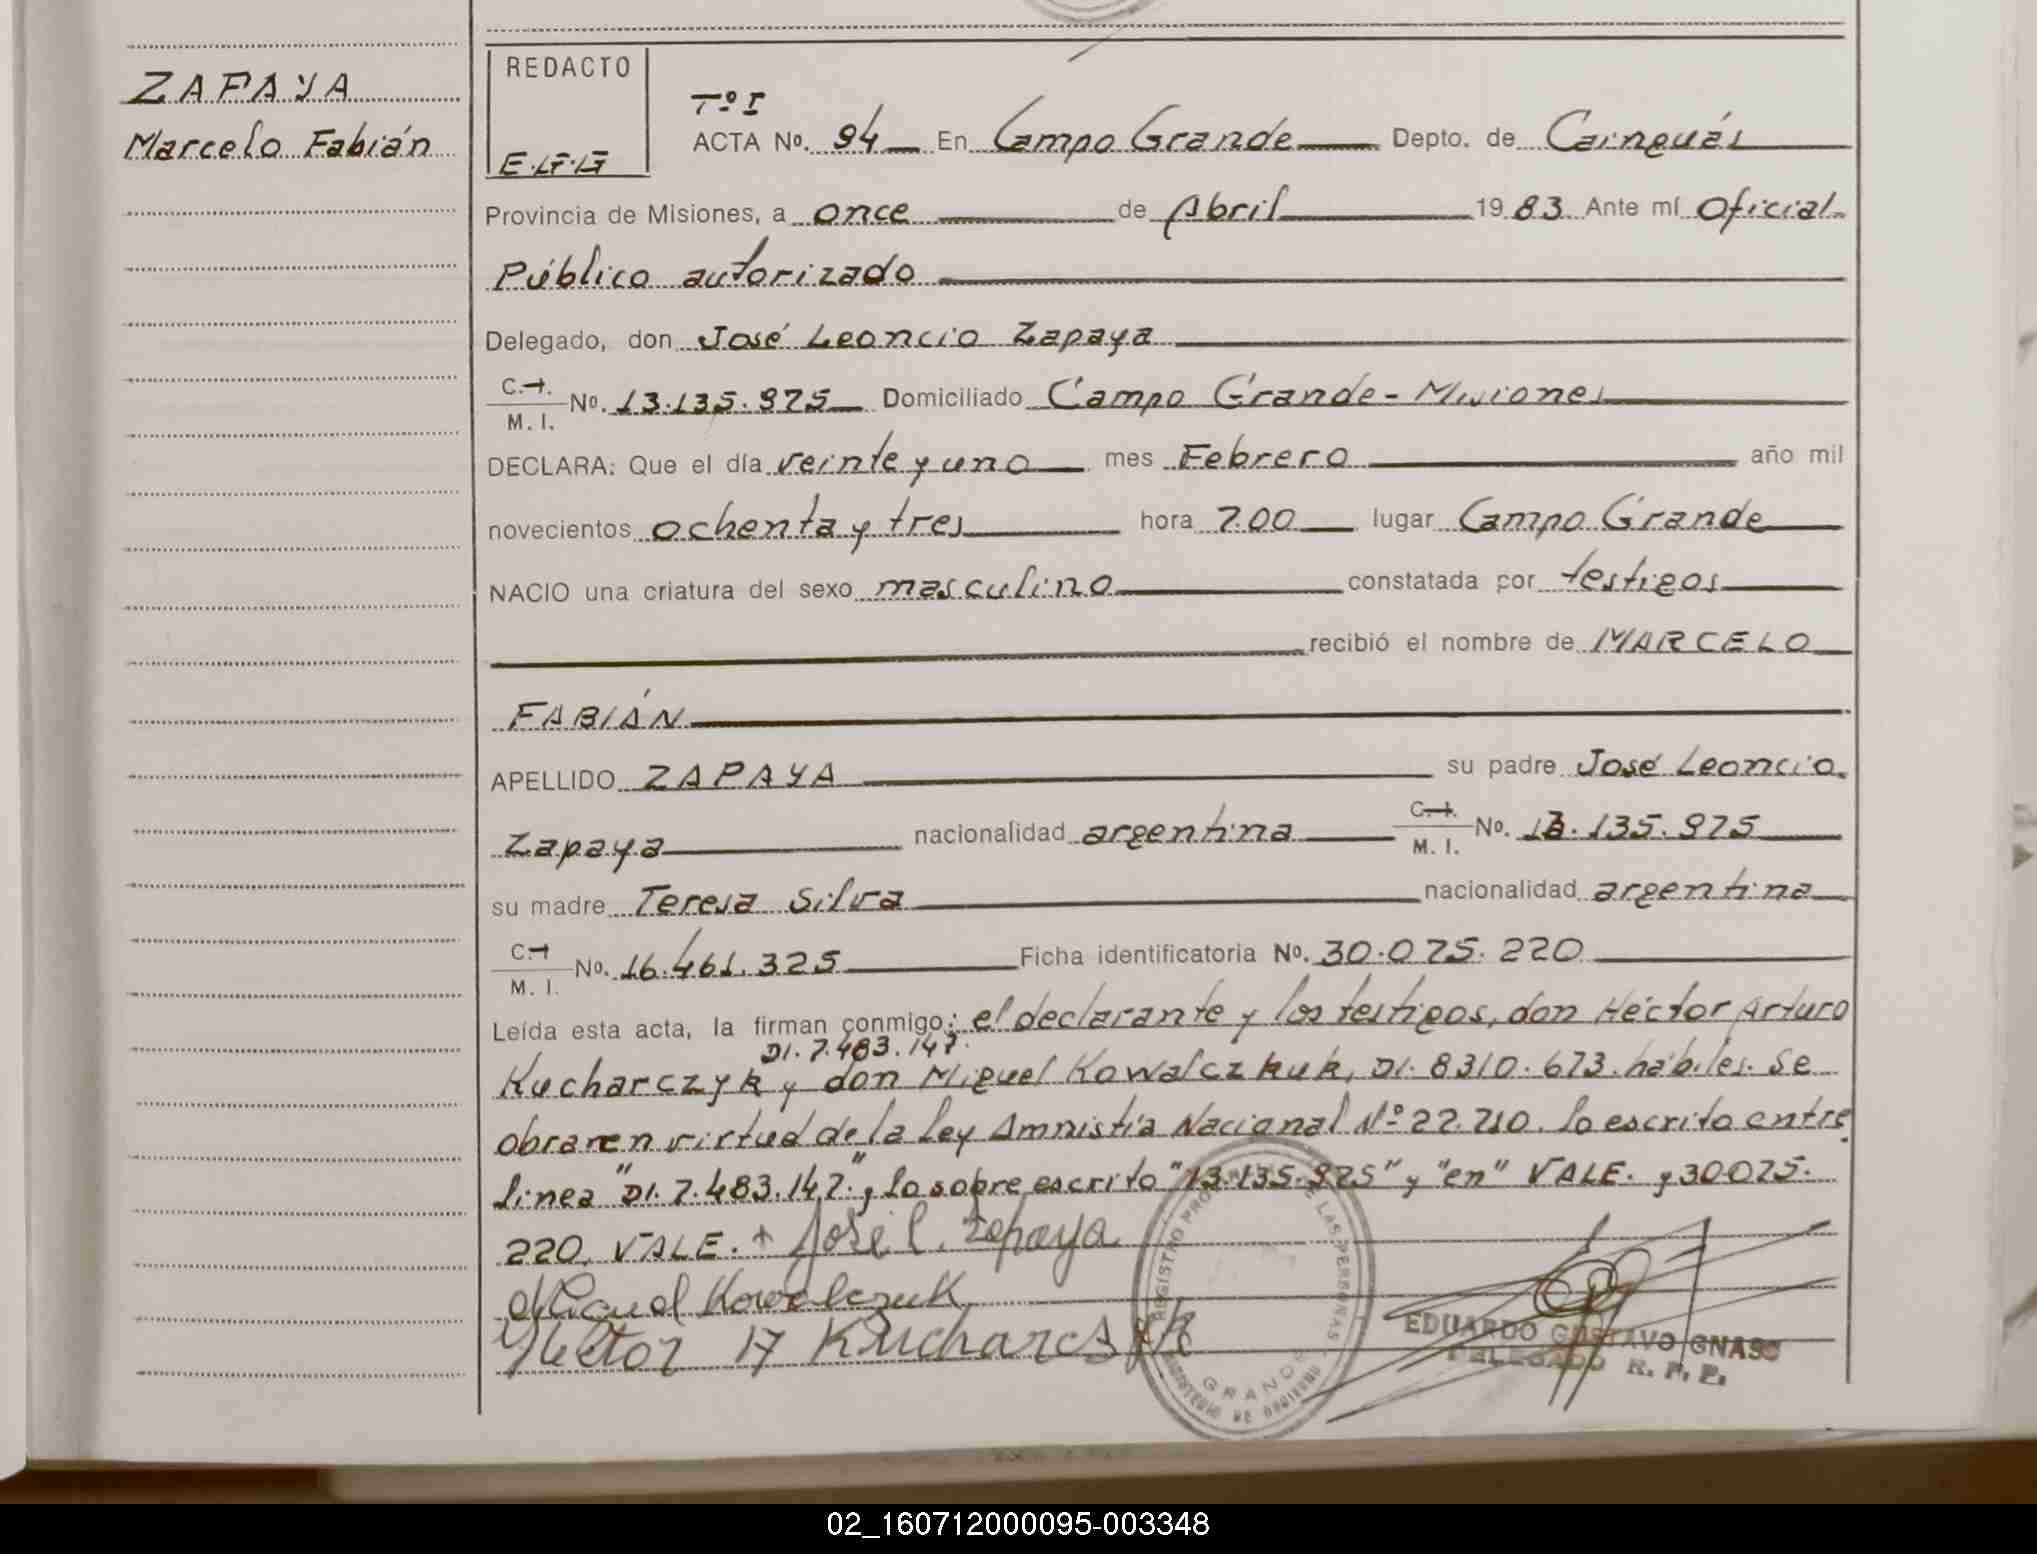 ZAPAYA
Marcelo Fabián
REDACTO
E.G.G
Tº I
ACTA Nº. 94 En Campo Grande Depto. de Cainguás
Provincia de Misiones, a once de Abril 19 83 Ante mí Oficial
Público autorizado
Delegado, don José Leoncio Zapaya
C. I. M. I. Nº. 13.135.975 Domiciliado Campo Grande - Misiones
DECLARA: Que el día veinte y uno mes Febrero año mil
novecientos ochenta y tres hora 7.00 lugar Campo Grande
NACIO una criatura del sexo masculino constatada por testigos
recibió el nombre de MARCELO
FABIÁN
APELLIDO ZAPAYA su padre José Leoncio
Zapaya nacionalidad argentina C. I. M. I. Nº. 13.135.975
su madre Teresa Silva nacionalidad argentina
C. I. M. I. Nº. 16.461.325 Ficha identificatoria Nº. 30.075.220
Leída esta acta, la firman conmigo: el declarante y los testigos, don Héctor Arturo
DI. 7.483.147.
Kucharczyk y don Miguel Kowalczkuk, DI. 8310.673. hábiles. Se
obra en virtud de la Ley Amnistía Nacional Nº 22.710. lo escrito entre
línea "DI. 7.483.147.", lo sobre escrito "13.135.975" y "en" VALE. y 30075.
220. VALE. + José L. Zapaya
Miguel Kowalczuk
Hector A Kucharczyk
REGISTRO PRO DE LAS PERSONAS
GRANDE
MINISTERIO DE GOBIERNO
EDUARDO GUSTAVO GNASS
DELEGADO R. P. P.
02_160712000095-003348